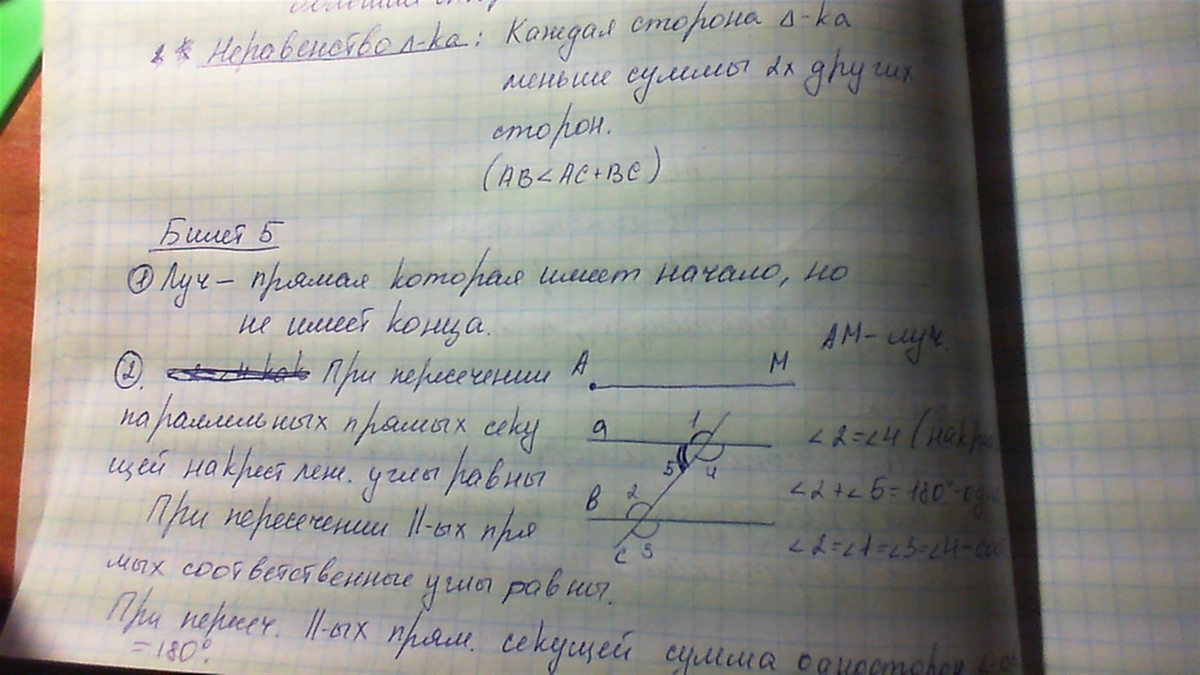 Неравенство Δ-ка: Каждая сторона Δ-ка
меньше суммы 2х других
сторон.
(AB<AC+BC)
Билет 5
① Луч – прямая которая имеет начало, но
не имеет конца.
AM – луч.
②. При пересечении
параллельных прямых секу
щей накрест леж. углы равны
При пересечении ||-ых пря
мых соответственные углы равны.
При пересеч. ||-ых прям. секущей сумма
=180°.
A M
a 1
5 4
B 2
c 3
∠2=∠4 (накрес
∠2+∠5=180°-одн
∠2=∠1=∠3=∠4-соо